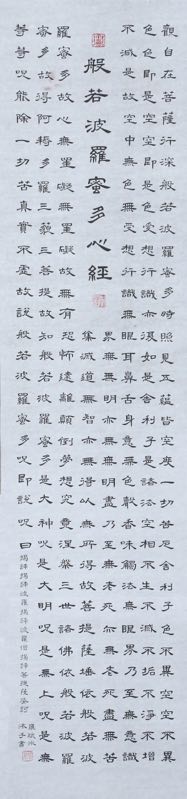 觀自在菩薩行深般若波羅蜜多時照見五蘊皆空度一切苦厄舍利子色不異空空不異
色色即是空空即是色受想行識亦復如是舍利子是諸法空相不生不滅不垢不淨不增
不減是故空中無色無受想行識無眼耳鼻舌身意無色聲香味觸法無眼界乃至無意識
般若波羅蜜多心經
界無無明亦無無明盡乃至無老死亦無老死盡無苦
集滅道無智亦無得以無所得故菩提薩埵依般若波
羅蜜多故心無罣礙無罣礙故無有恐怖遠離顛倒夢想究竟涅槃三世諸佛依般若波羅
蜜多故得阿耨多羅三藐三菩提故知般若波羅蜜多是大神咒是大明咒是無上咒是無
等等咒能除一切苦真實不虛故說般若波羅蜜多咒即說咒曰
揭諦揭諦波羅揭諦波羅僧揭諦菩提薩婆訶